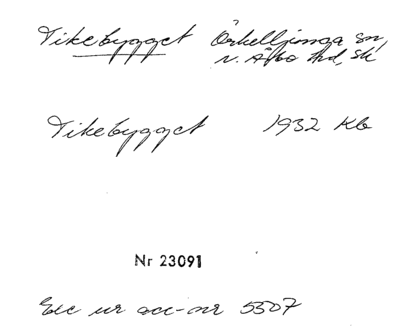 Tikebygget Örkelljunga sn,
n. Åsbo hd, Sk
Tikebygget 1932 Kb
Nr 23091
Exc ur acc-nr 5507